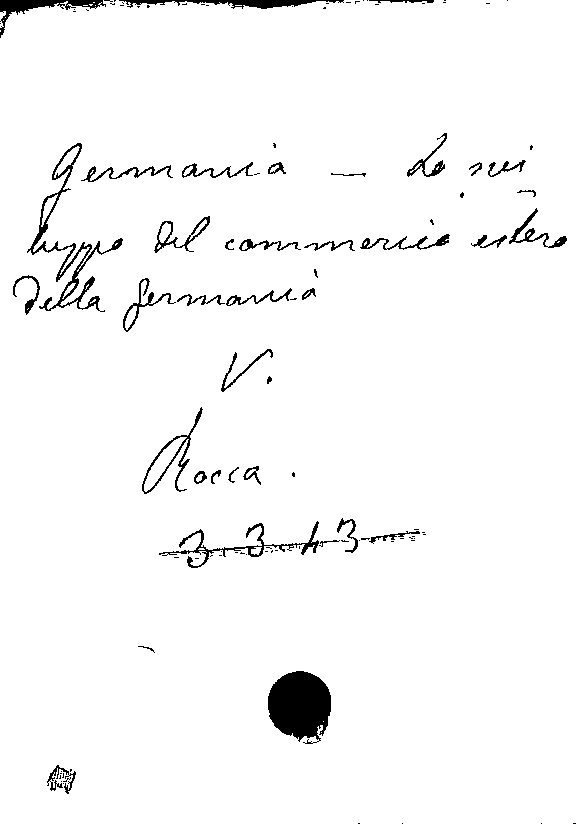 Germania — Lo svi
luppo del commercio estero
della Germania
V.
Rocca.
3343